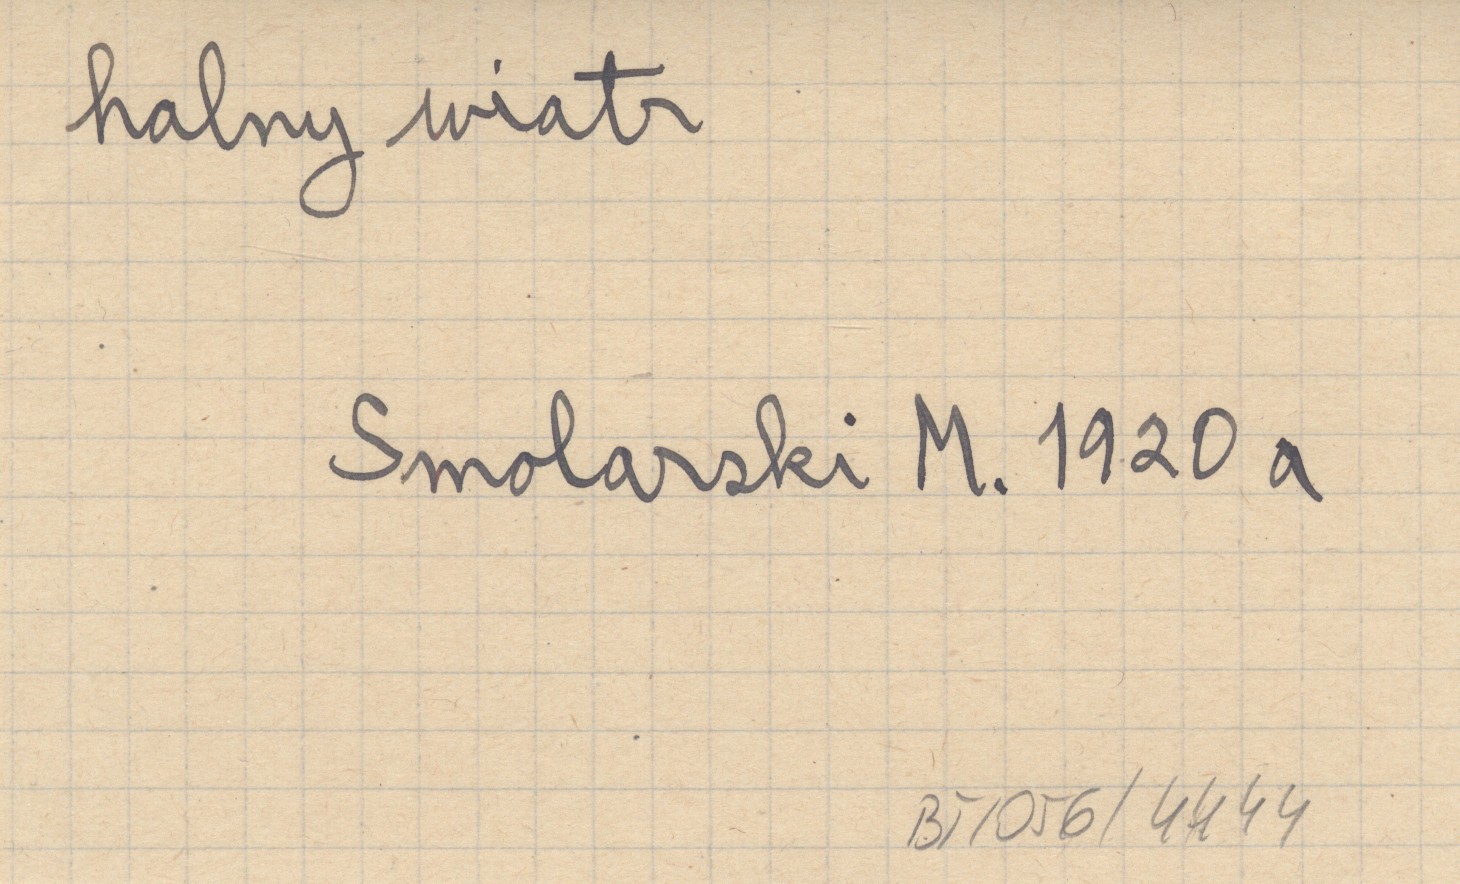 halny wiatr
Smolarski M. 1920 a
BT/056/4444